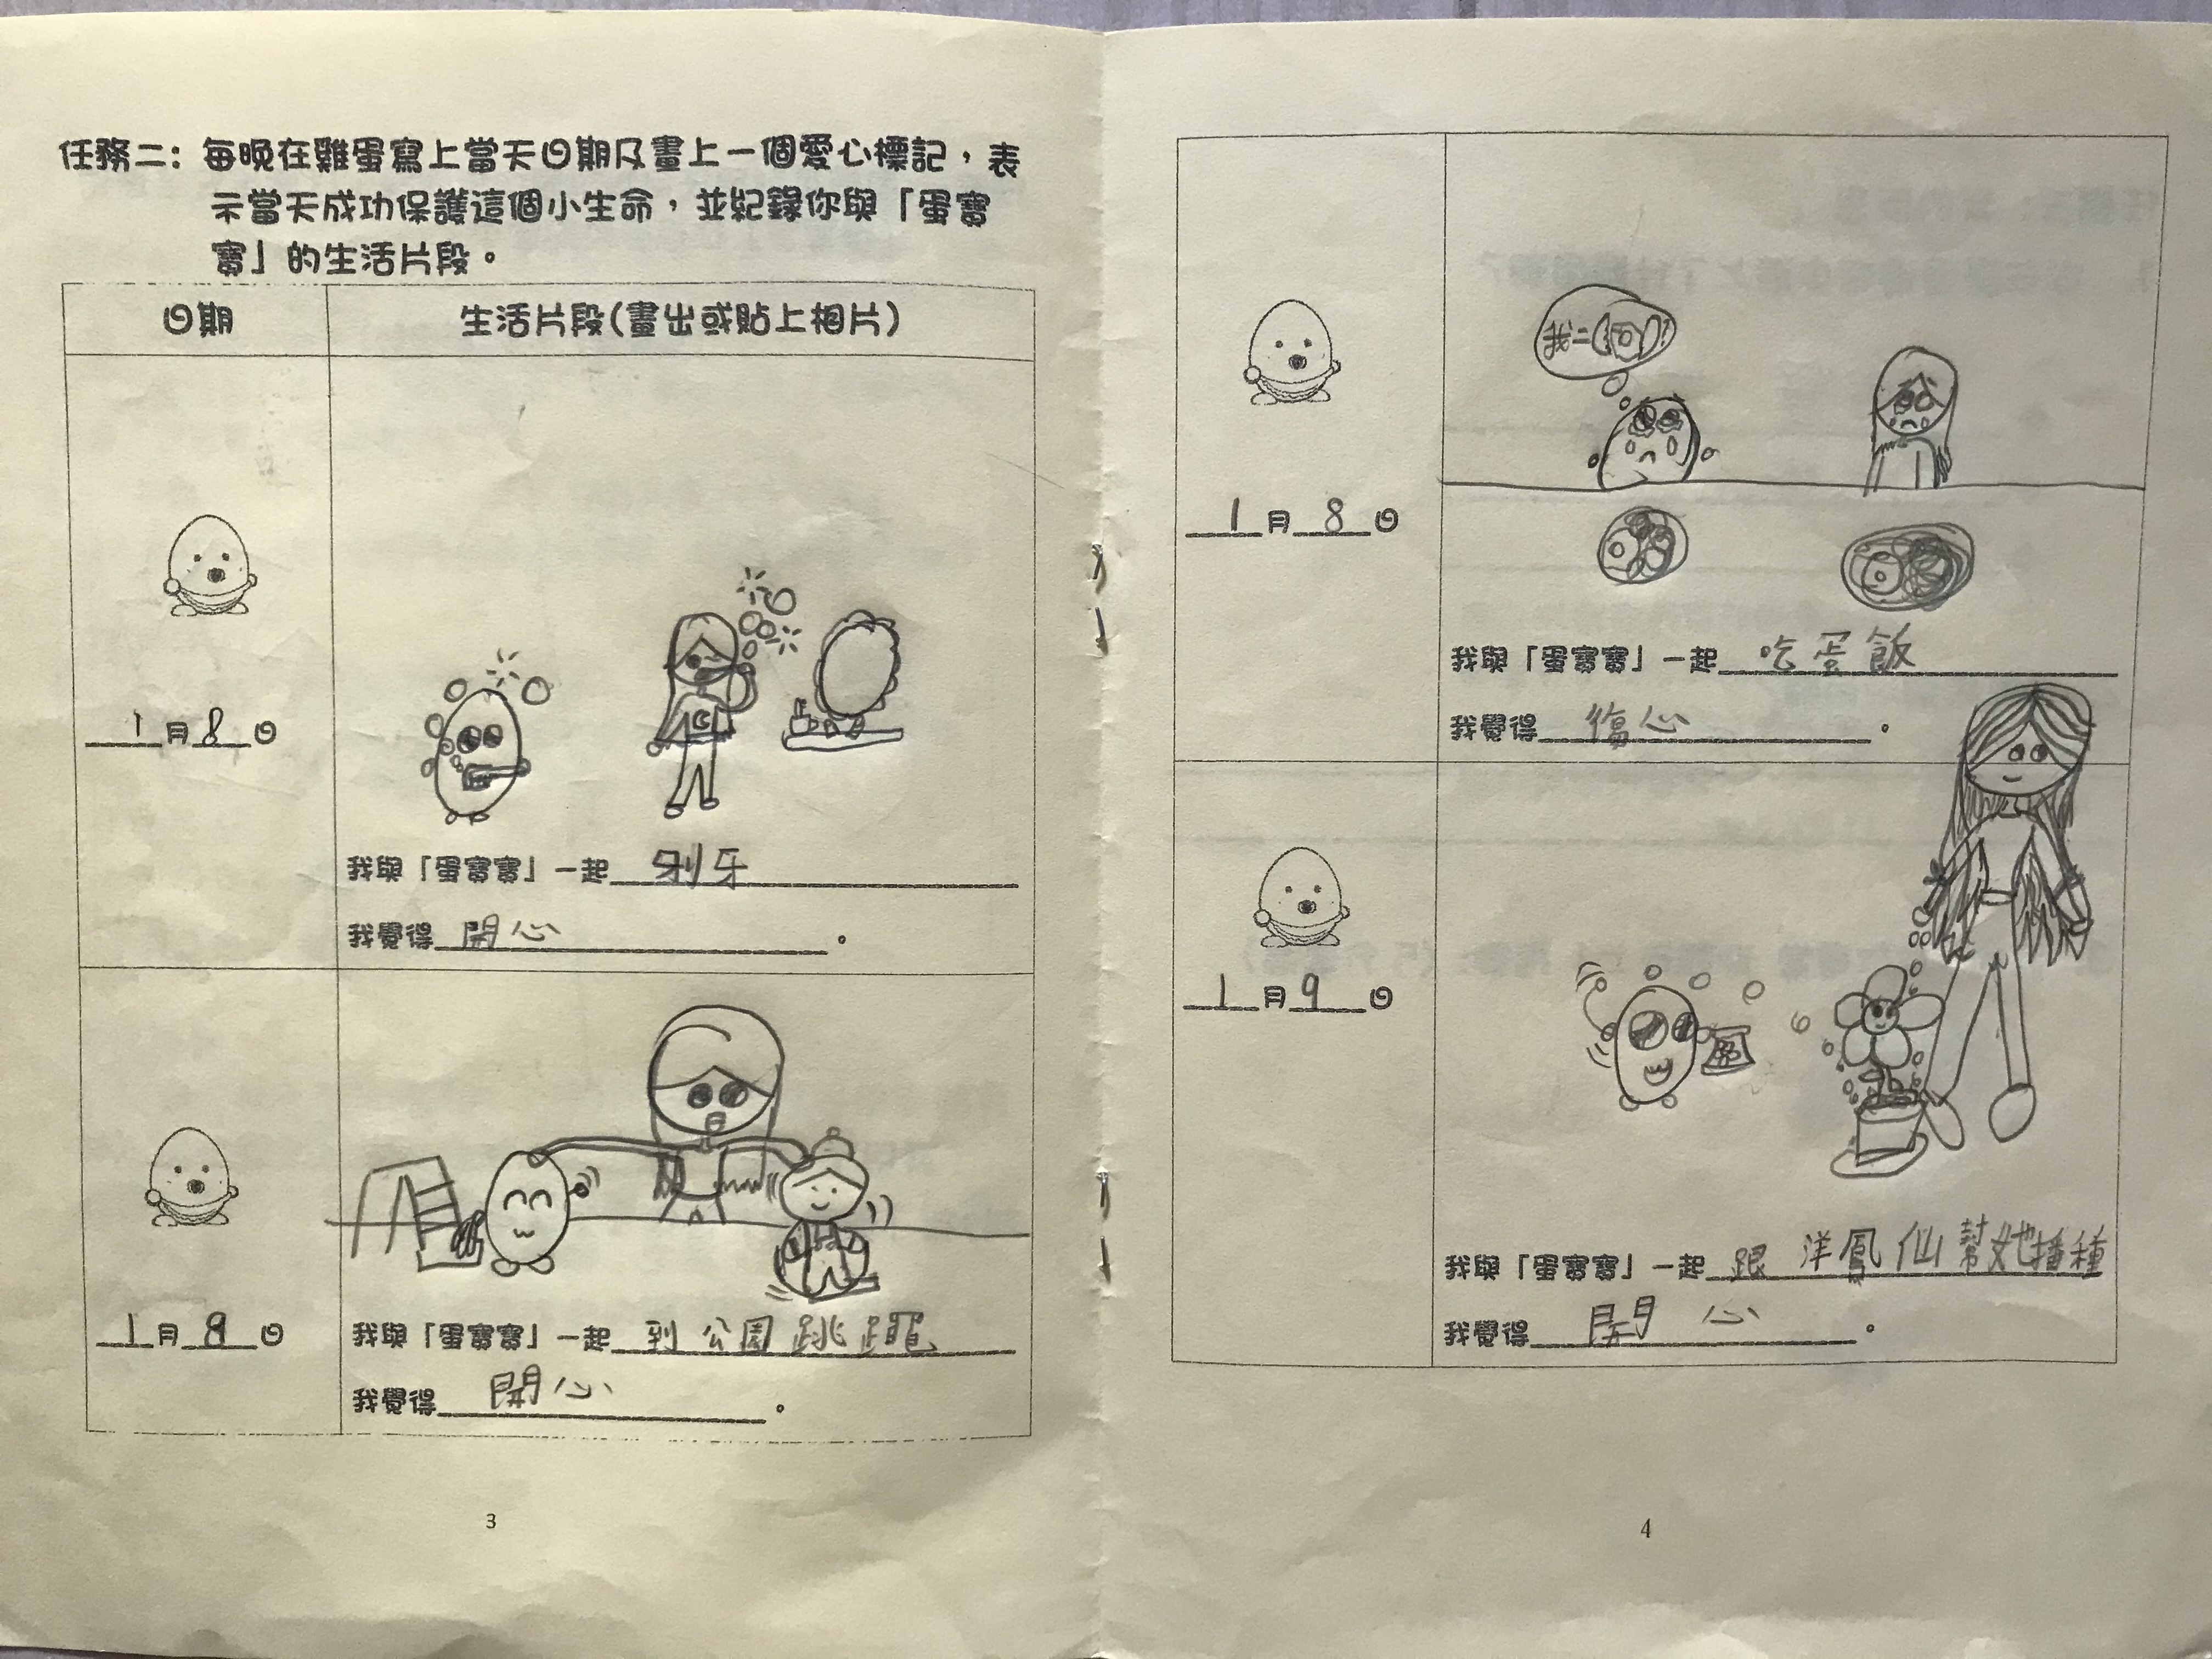 任務二：每晚在雞蛋寫上當天日期及畫上一個愛心標記，表
示當天成功保護這個小生命，並紀錄你與「蛋寶
寶」的生活片段。
日期 生活片段(畫出或貼上相片)
1月8日
我與「蛋寶寶」一起 刷牙
我覺得 開心。
1月8日
我與「蛋寶寶」一起 到公園跳
我覺得 開心。
3
我=
1月8日
我與「蛋寶寶」一起 吃蛋飯
我覺得 傷心。
1月9日
我與「蛋寶寶」一起 跟洋鳳仙幫她播種
我覺得 開心。
4